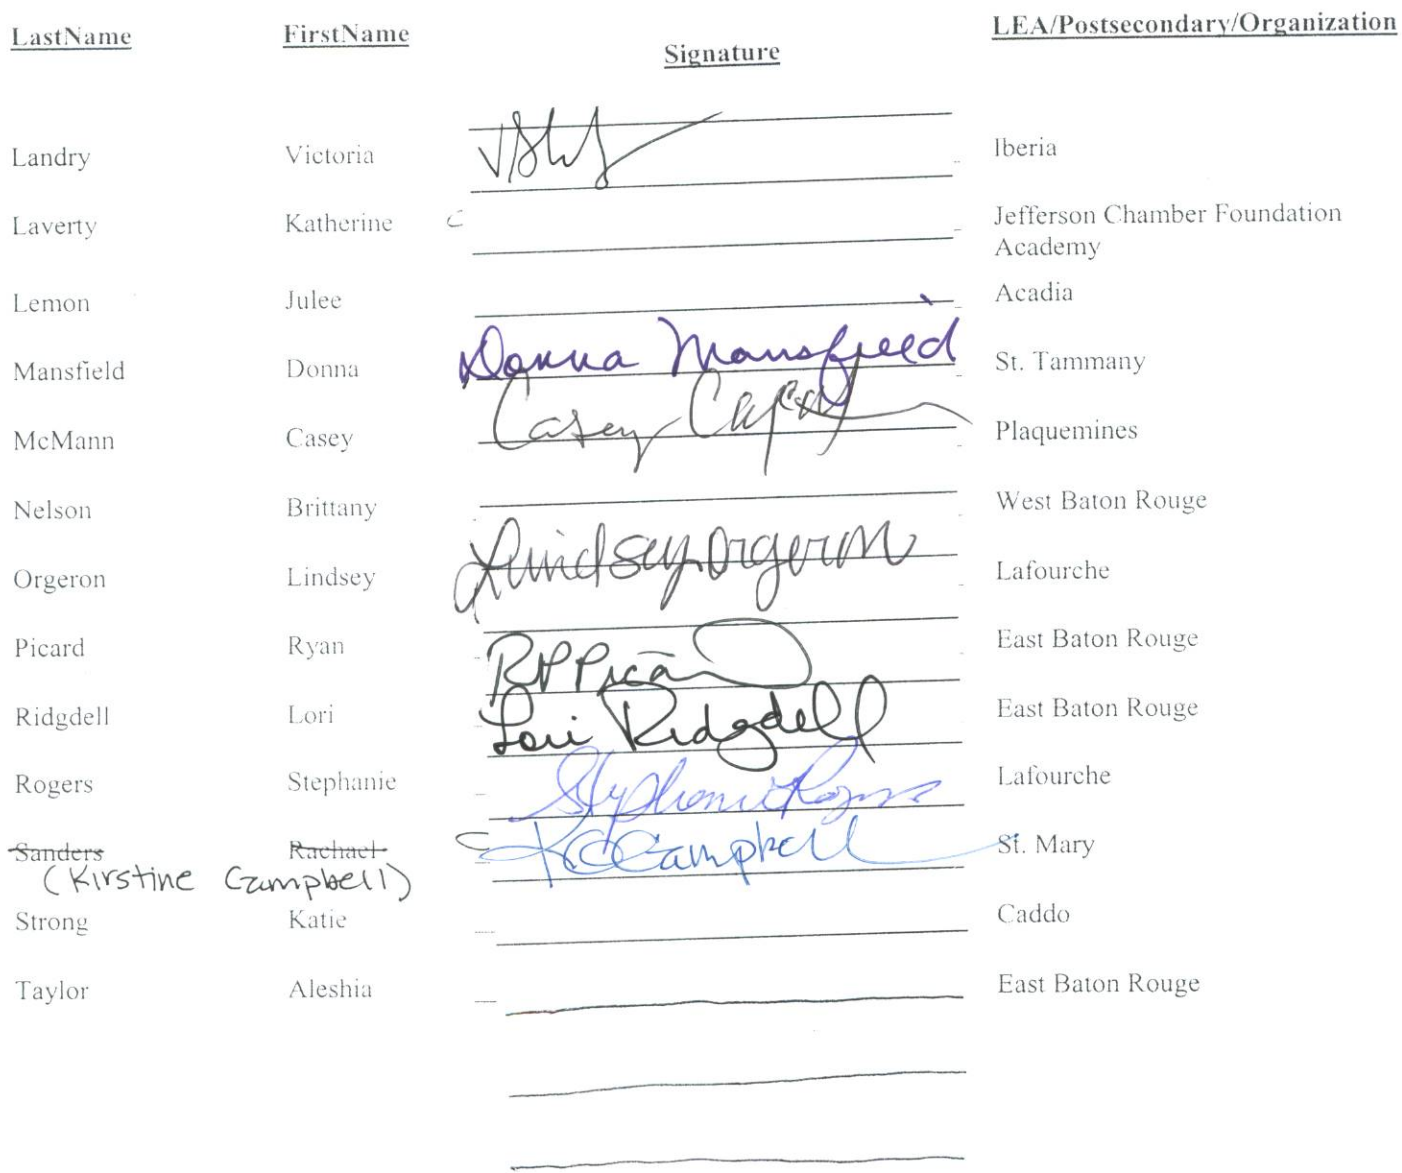 LastName FirstName Signature LEA/Postsecondary/Organization
Landry Victoria Iberia
Laverty Katherine Jefferson Chamber Foundation
Academy
Lemon Julee Acadia
Mansfield Donna Donna Mansfield St. Tammany
McMann Casey Casey Plaquemines
Nelson Brittany West Baton Rouge
Orgeron Lindsey Lindsey Orgeron Lafourche
Picard Ryan RP Picard East Baton Rouge
Ridgdell Lori Lori Ridgdell East Baton Rouge
Rogers Stephanie Stephanie Rogers Lafourche
Sanders Rachael KC Campbell St. Mary
(Kirstine Campbell)
Strong Katie Caddo
Taylor Aleshia East Baton Rouge